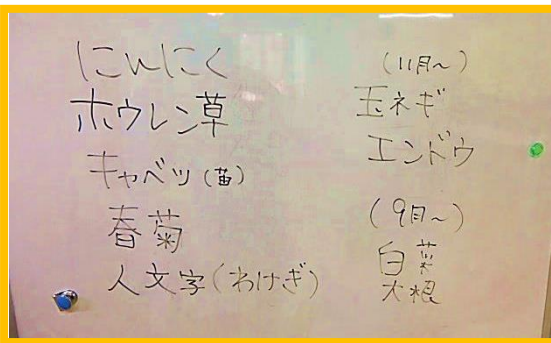 にんにく
ホウレン草
キャベツ(苗)
春菊
人文字(わけぎ)
(11月~)
玉ネギ
エンドウ
(9月~)
白菜
大根